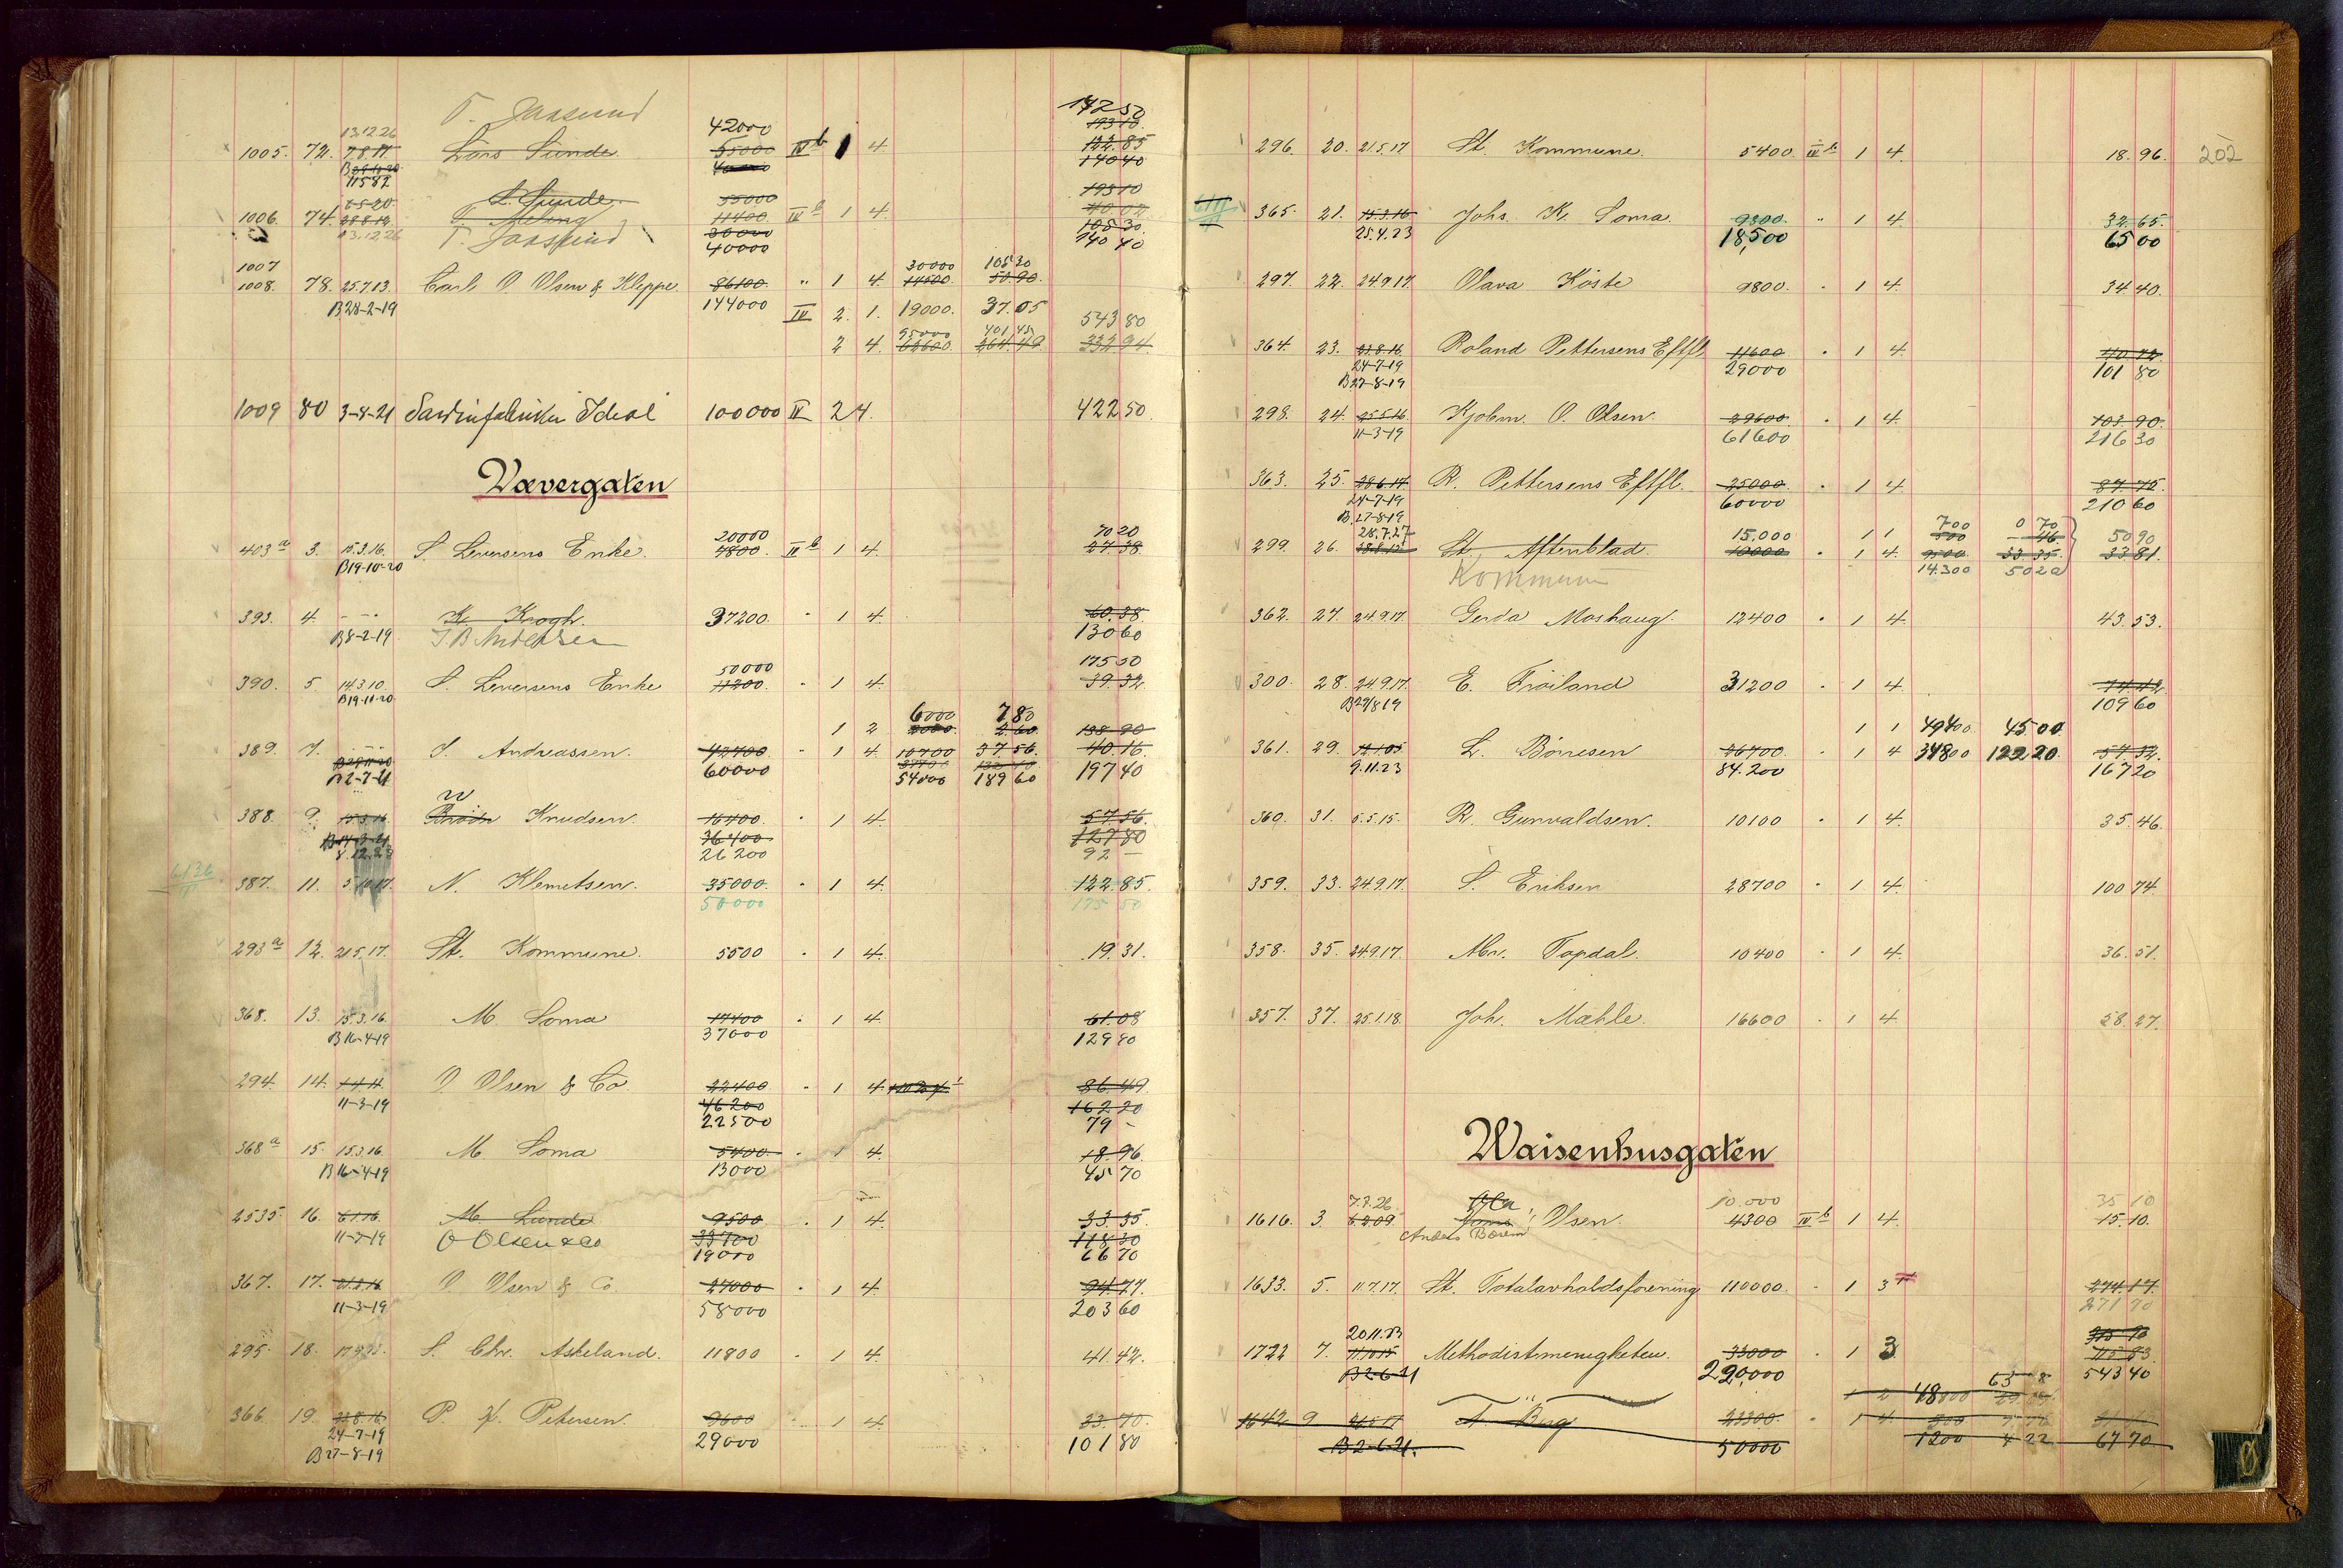 T. Jaasund
1005. 72. 13.12.26 7.8.17 B29-10-20 11582 Lars Sunde. 42000 55000 40000 IV b 1 4. 14250 19310. 122.85 14040
1006. 74. 6-5-20 28.8.12. 13.12.26 L. Sunde. T. Meling T. Jaasund 55000 11400. 30000 40000 IV b 1 4. 19310 40 02 105 30. 140 40
1007 1008. 78. 25.7.13. B28-2-19 Carl O. Olsen & Kleppe. 86100. 144000 " 1 4. 30000 14500. 105 30 50.90.
IV 2. 1. 19000. 37.05 543 80
2 4. 95000 62600. 401,45 264.49. 332 94.
1009 80 3-8-21 Sardinfabriken Ideal 100000 IV 2 4. 422 50
Vævergaten
403 a 3. 15.3.16. B19-10-20 S. Leversens Enke. 20000 4800. IV b 1 4. 70 20 27.38.
393. 4 - - - B8-2-19 K. Krogh. J. B. Andersen 37200. " 1 4. 60.38. 130 60
390. 5. 14.3.10. B19-11-20. S. Leversens Enke 50000 11200. " 1 4. 175 50 39.32.
1 2 6000 2000. 7 80 2.60. 138 90
389. 7. - - - B29-11-20 B2-7-21 S. Andreassen. 42700 60000 " 1 4. 10700 54000 37.56. 189 60 40.16 197 40
388. 9. 15.3.16 B14-3-21 8.12.23 Brødr Knudsen. 16400. 36400 26200 " 1 4. 57.56. 127 80 92 -
6136 387. 11. 5.10.17. N. Klemetsen. 35000. 50000 " 1 4. 122 85. 175 50
293 a 12. 21.5.17. St. Kommune. 5500 " 1 4. 19.31.
368. 13. 15.3.16. B16-4-19 M. Soma 17400 37000 " 1 4. 61.08 129 90
294. 14. 1.4.11. 11-3-19 O. Olsen & Co. 22400 46200 22500 " 1 4. 86.49 162 20 79 -
368 a 15. 15.3.16. B16-4-19 M. Soma 5400. 13000 " 1 4. 18.96 45 70
2535 16. 6.1.16. 11-3-19 M. Lunde O Olsen & Co 9500 33700 19000 " 1 4. 33.35. 118 30 66 70
367. 17. 21.2.16. 11-3-19 O. Olsen & Co. 27000 58000 " 1 4. 94.77. 203 60
295. 18. S. Chr. Askeland. 11800 " 1 4. 41.42.
366. 19. 23.8.16. 24-7-19 B27-8-19 P. H. Petersen. 9600 29000 " 1 4 33.70. 101 80
202
296. 20. 21.5.17 St. Kommune. 5400. IV b 1 4. 18.96.
365. 21. 15.3.16 25.4.23 Johs. K. Soma 9300. 18,500 " 1 4. 32.65. 65 00
297. 22. 24.9.17. Olava Köste 9800. " 1 4. 34 40.
364. 23. 23.8.16. 24-7-19 B27-8-19 Roland Pettersens Eftfl. 11600 29000 " 1 4. 101 80
298. 24. 25.5.16 11-3-19 Kjøbm. O. Olsen. 29600. 61600 " 1 4. 103.90. 216 30
363. 25. 28.6.17 24-7-19 B.27-8-19 R. Pettersens Eftfl. 25000. 60000 " 1 4. 87.75. 210 60
299. 26. 28.7.27 St. Aftenblad. Kommune 15.000 10000 " 1 1 1 4. 700 500 9500 14.300 0 70 - 46. 33 35. 50 20 50 90 33 81.
362. 27. 24.9.17. Gerda Moshaug. 12400 " 1 4. 43.53.
300. 28. 24.9.17. B29/8 19 E. Fröiland 31200 " 1 4. 74.42 109 60
361. 29. 12.1.05 9.11.23 L. Börresen 26700. 84.200 1 1 1 4 49400. 34800 45.00. 122 20. 57.32. 167 20
360. 31. 5.5.15. R. Gunvaldsen. 10100 " 1 4. 35.46.
359. 33. 24.9.17. S. Eriksen 28700 " 1 4. 100 74.
358. 35. 24.9.17. Mrs. Topdal. 10400 " 1 4. 36.51.
357. 37. 25.1.18. Joh. Mæhle. 16600 " 1 4. 58.27.
Waisenhusgaten
1616. 3. 7.7.26 6.2.09. Olsen. Anders Borem 10.000 4300 IV b 1 4. 35 10 15.10.
1633. 5. 11.7.17. St. Totalavholdsforening 110000. " 1 3 274.17. 271 70
1722 7. 20.11.23 11.10.15 B2-6-21 Methodistmenigheten. 33000 220,000 " 1 3 115.83. 543 40
1642 9 21.5.17 B2-6-21. T. Berg 23300. 50000 1 2 1 4 48000 500 1200 63 8 4 22 67 70
Ø